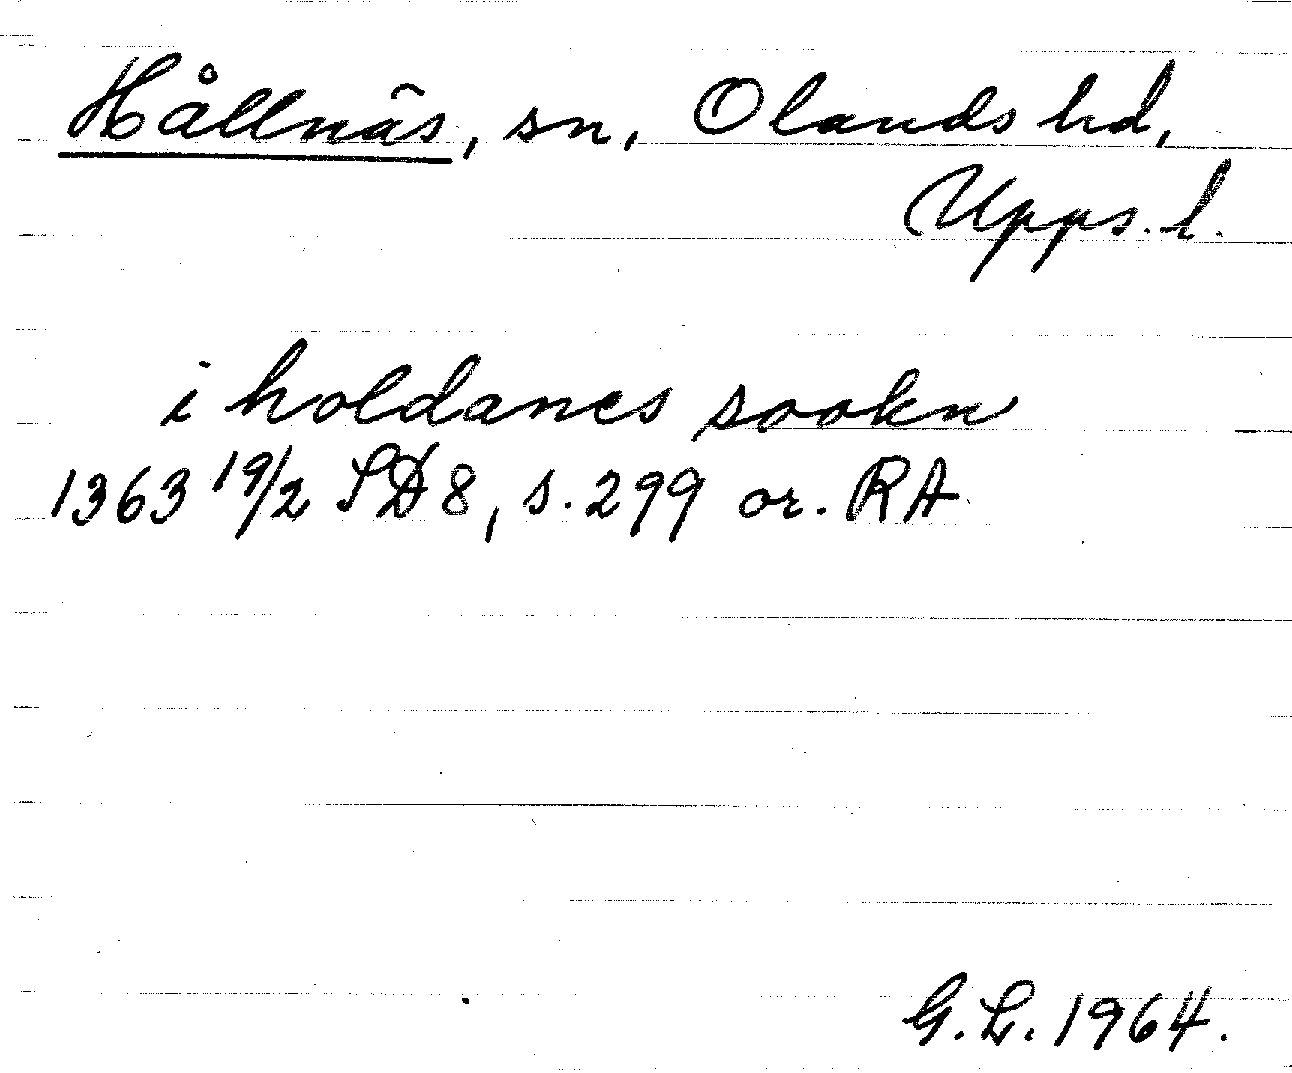 Hållnäs, sn, Olands hd,
Upps. l.
i holdanes sookn
1363 19/2 SD 8, s. 299 or. RA
G. L. 1964.